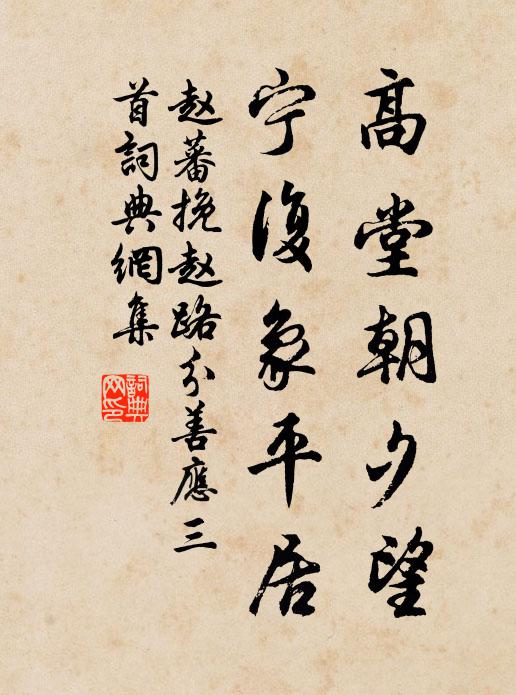 高堂朝夕望
宁復象平居
赵蕃挽赵路分善應三
首詞典網集
詞典网印